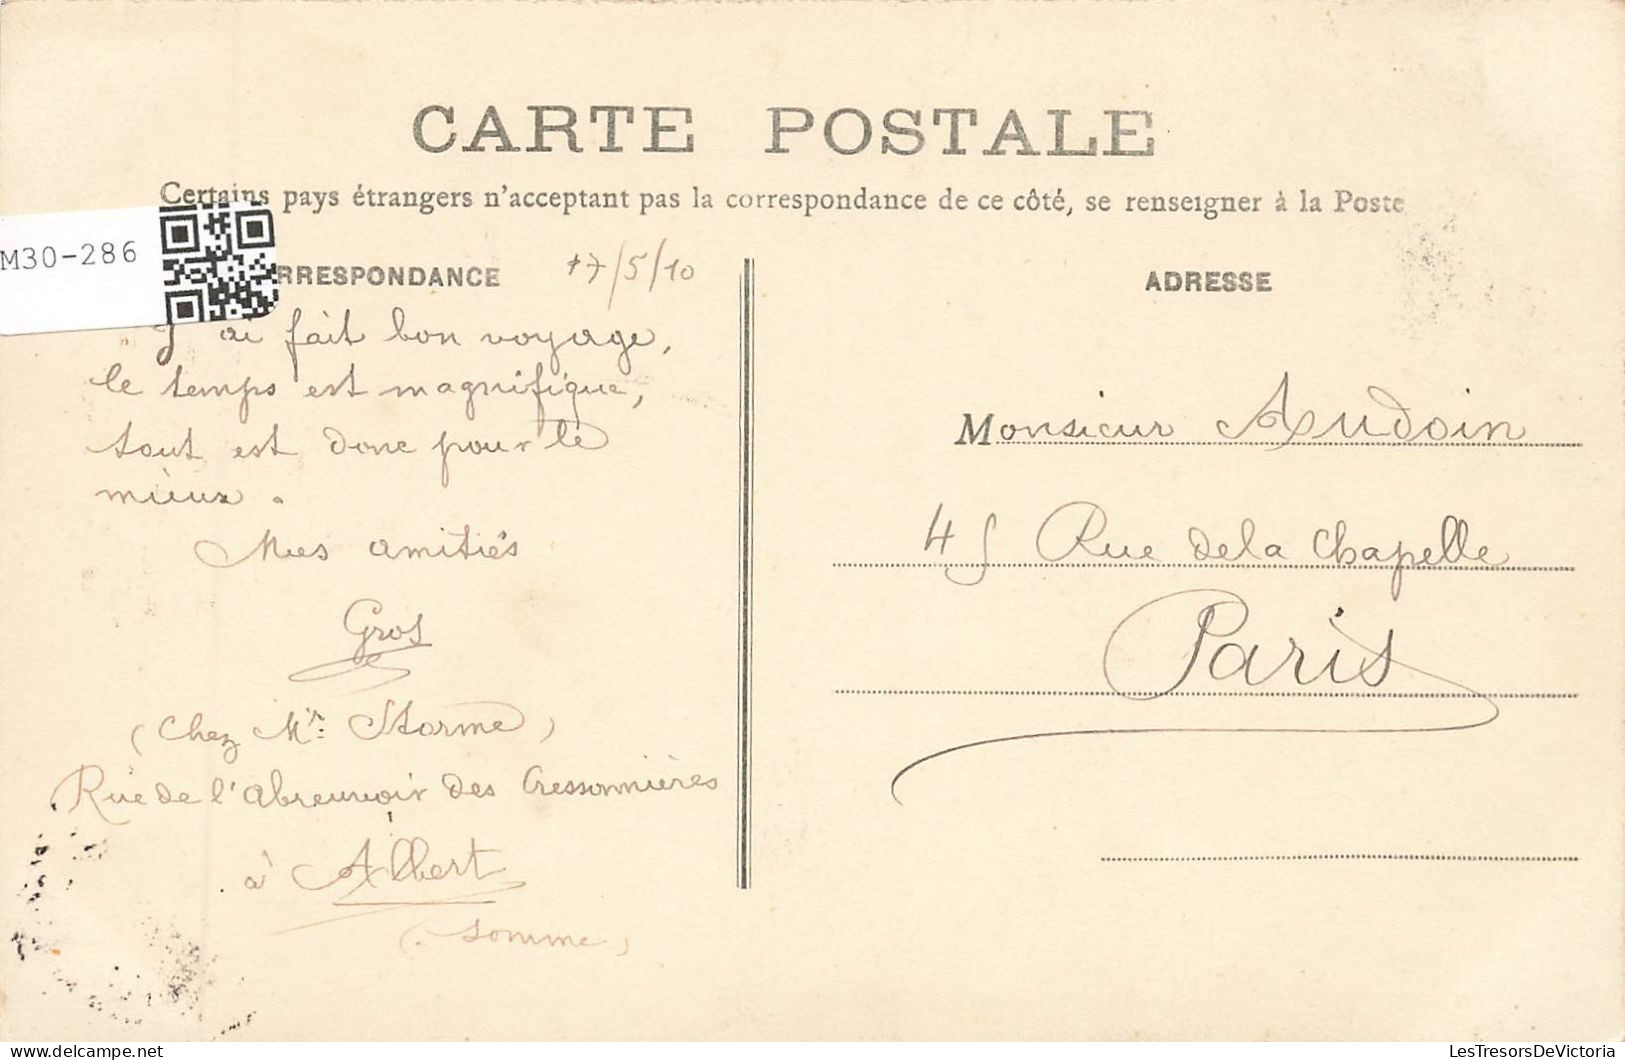 CARTE POSTALE
Certains pays étrangers n'acceptant pas la correspondance de ce côté, se renseigner à la Poste
M30-286
RRESPONDANCE
17/5/10
J'ai fait bon voyage,
le temps est magnifique,
tout est donc pour le
mieux.
Mes amitiés
Gros
(Chez Mr. Storme)
Rue de l'abreuvoir des Cressonnières
à Albert
(Somme)
ADRESSE
Monsieur Audoin
45 Rue de la Chapelle
Paris
LesTresorsDeVictoria